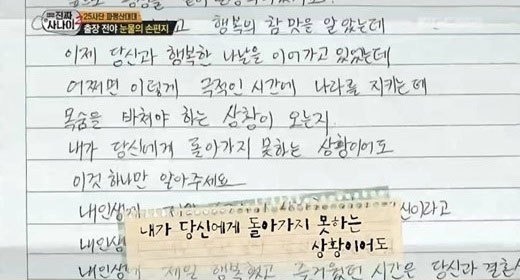 진짜 사나이
25사단 파평산대대
출장 전야 눈물의 손편지
고 행복의 참 맛을 알았는데
이제 당신과 행복한 나날을 이어가고 있었는데
어쩌면 이렇게 극적인 시간에 나라를 지키는데
목숨을 바쳐야 하는 상황이 오는지.
내가 당신에게 돌아가지 못하는 상황이어도
이것 하나만 알아주세요
내인생에 신이라고
내가 당신에게 돌아가지 못하는
상황이어도
내인생
내인생에 제일 행복했고 즐거웠던 시간은 당신과 결혼